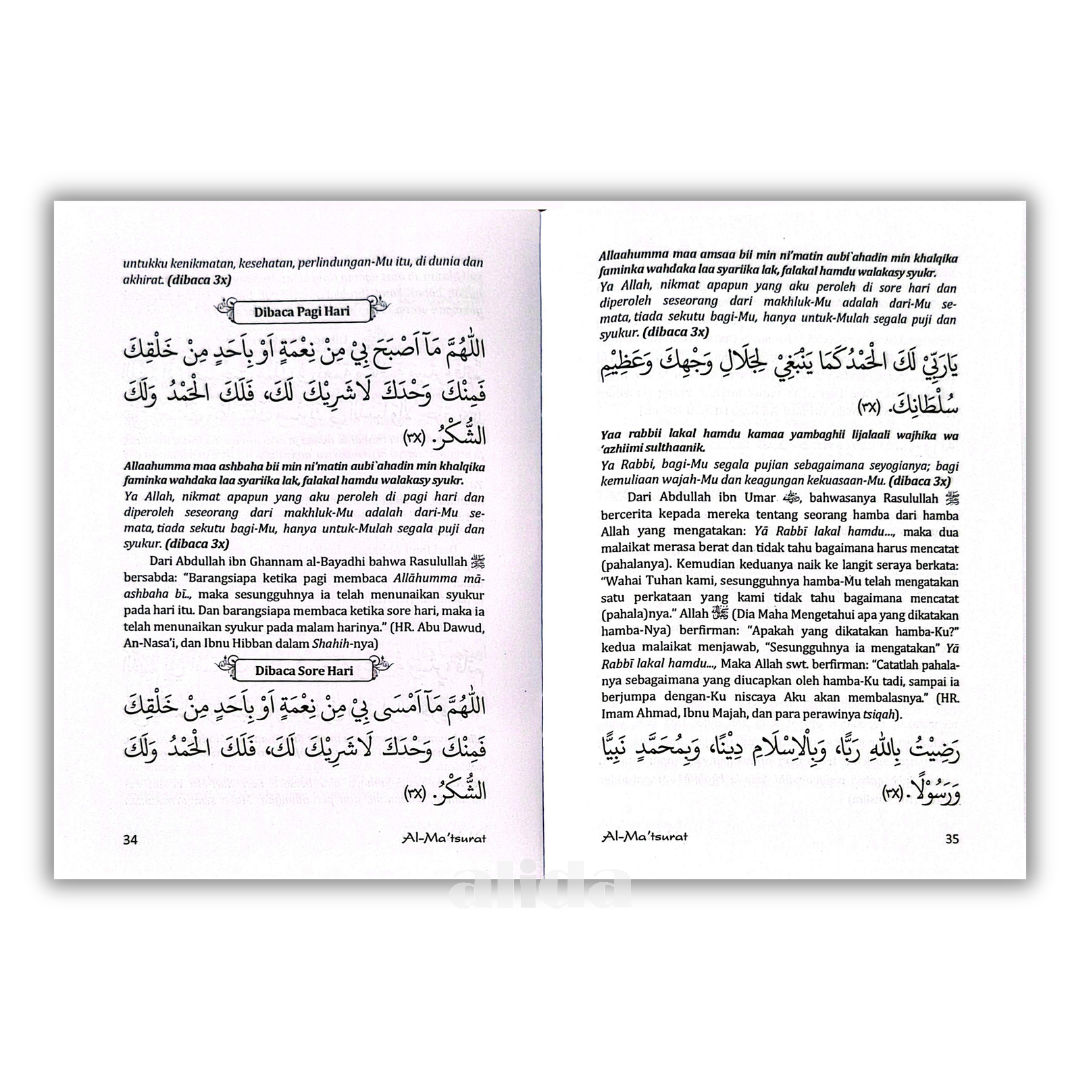 untukku kenikmatan, kesehatan, perlindungan-Mu itu, di dunia dan
akhirat. (dibaca 3x)
Dibaca Pagi Hari
اَللّٰهُمَّ مَآ اَصْبَحَ بِيْ مِنْ نِعْمَةٍ اَوْ بِاَحَدٍ مِنْ خَلْقِكَ
فَمِنْكَ وَحْدَكَ لَاشَرِيْكَ لَكَ، فَلَكَ الْحَمْدُ وَلَكَ
الشُّكْرُ. (٣x)
Allaahumma maa ashbaha bii min ni'matin aubi'ahadin min khalqika
faminka wahdaka laa syariika lak, falakal hamdu walakasy syukr.
Ya Allah, nikmat apapun yang aku peroleh di pagi hari dan
diperoleh seseorang dari makhluk-Mu adalah dari-Mu se-
mata, tiada sekutu bagi-Mu, hanya untuk-Mulah segala puji dan
syukur. (dibaca 3x)
Dari Abdullah ibn Ghannam al-Bayadhi bahwa Rasulullah ﷺ
bersabda: "Barangsiapa ketika pagi membaca Allāhumma mā-
ashbaha bī.., maka sesungguhnya ia telah menunaikan syukur
pada hari itu. Dan barangsiapa membaca ketika sore hari, maka ia
telah menunaikan syukur pada malam harinya." (HR. Abu Dawud,
An-Nasa'i, dan Ibnu Hibban dalam Shahih-nya)
Dibaca Sore Hari
اَللّٰهُمَّ مَآ اَمْسَى بِيْ مِنْ نِعْمَةٍ اَوْ بِاَحَدٍ مِنْ خَلْقِكَ
فَمِنْكَ وَحْدَكَ لَاشَرِيْكَ لَكَ، فَلَكَ الْحَمْدُ وَلَكَ
الشُّكْرُ. (٣x)
34 Al-Ma'tsurat
Allaahumma maa amsaa bii min ni'matin aubi'ahadin min khalqika
faminka wahdaka laa syariika lak, falakal hamdu walakasy syukr.
Ya Allah, nikmat apapun yang aku peroleh di sore hari dan
diperoleh seseorang dari makhluk-Mu adalah dari-Mu se-
mata, tiada sekutu bagi-Mu, hanya untuk-Mulah segala puji dan
syukur. (dibaca 3x)
يَارَبِّيْ لَكَ الْحَمْدُكَمَا يَنْبَغِيْ لِجَلَالِ وَجْهِكَ وَعَظِيْمِ
سُلْطَانِكَ. (٣x)
Yaa rabbii lakal hamdu kamaa yambaghii lijalaali wajhika wa
'azhiimi sulthaanik.
Ya Rabbi, bagi-Mu segala pujian sebagaimana seyogianya; bagi
kemuliaan wajah-Mu dan keagungan kekuasaan-Mu. (dibaca 3x)
Dari Abdullah ibn Umar, bahwasanya Rasulullah ﷺ
bercerita kepada mereka tentang seorang hamba dari hamba
Allah yang mengatakan: Yā Rabbī lakal hamdu..., maka dua
malaikat merasa berat dan tidak tahu bagaimana harus mencatat
(pahalanya). Kemudian keduanya naik ke langit seraya berkata:
"Wahai Tuhan kami, sesungguhnya hamba-Mu telah mengatakan
satu perkataan yang kami tidak tahu bagaimana mencatat
(pahala)nya." Allah (Dia Maha Mengetahui apa yang dikatakan
hamba-Nya) berfirman: "Apakah yang dikatakan hamba-Ku?"
kedua malaikat menjawab, "Sesungguhnya ia mengatakan" Yā
Rabbī lakal hamdu..., Maka Allah swt. berfirman: "Catatlah pahala-
nya sebagaimana yang diucapkan oleh hamba-Ku tadi, sampai ia
berjumpa dengan-Ku niscaya Aku akan membalasnya." (HR.
Imam Ahmad, Ibnu Majah, dan para perawinya tsiqah).
رَضِيْتُ بِاللهِ رَبًّا، وَبِالْاِسْلَامِ دِيْنًا، وَبِمُحَمَّدٍ نَبِيًّا
وَرَسُوْلًا. (٣x)
Al-Ma'tsurat 35
alida